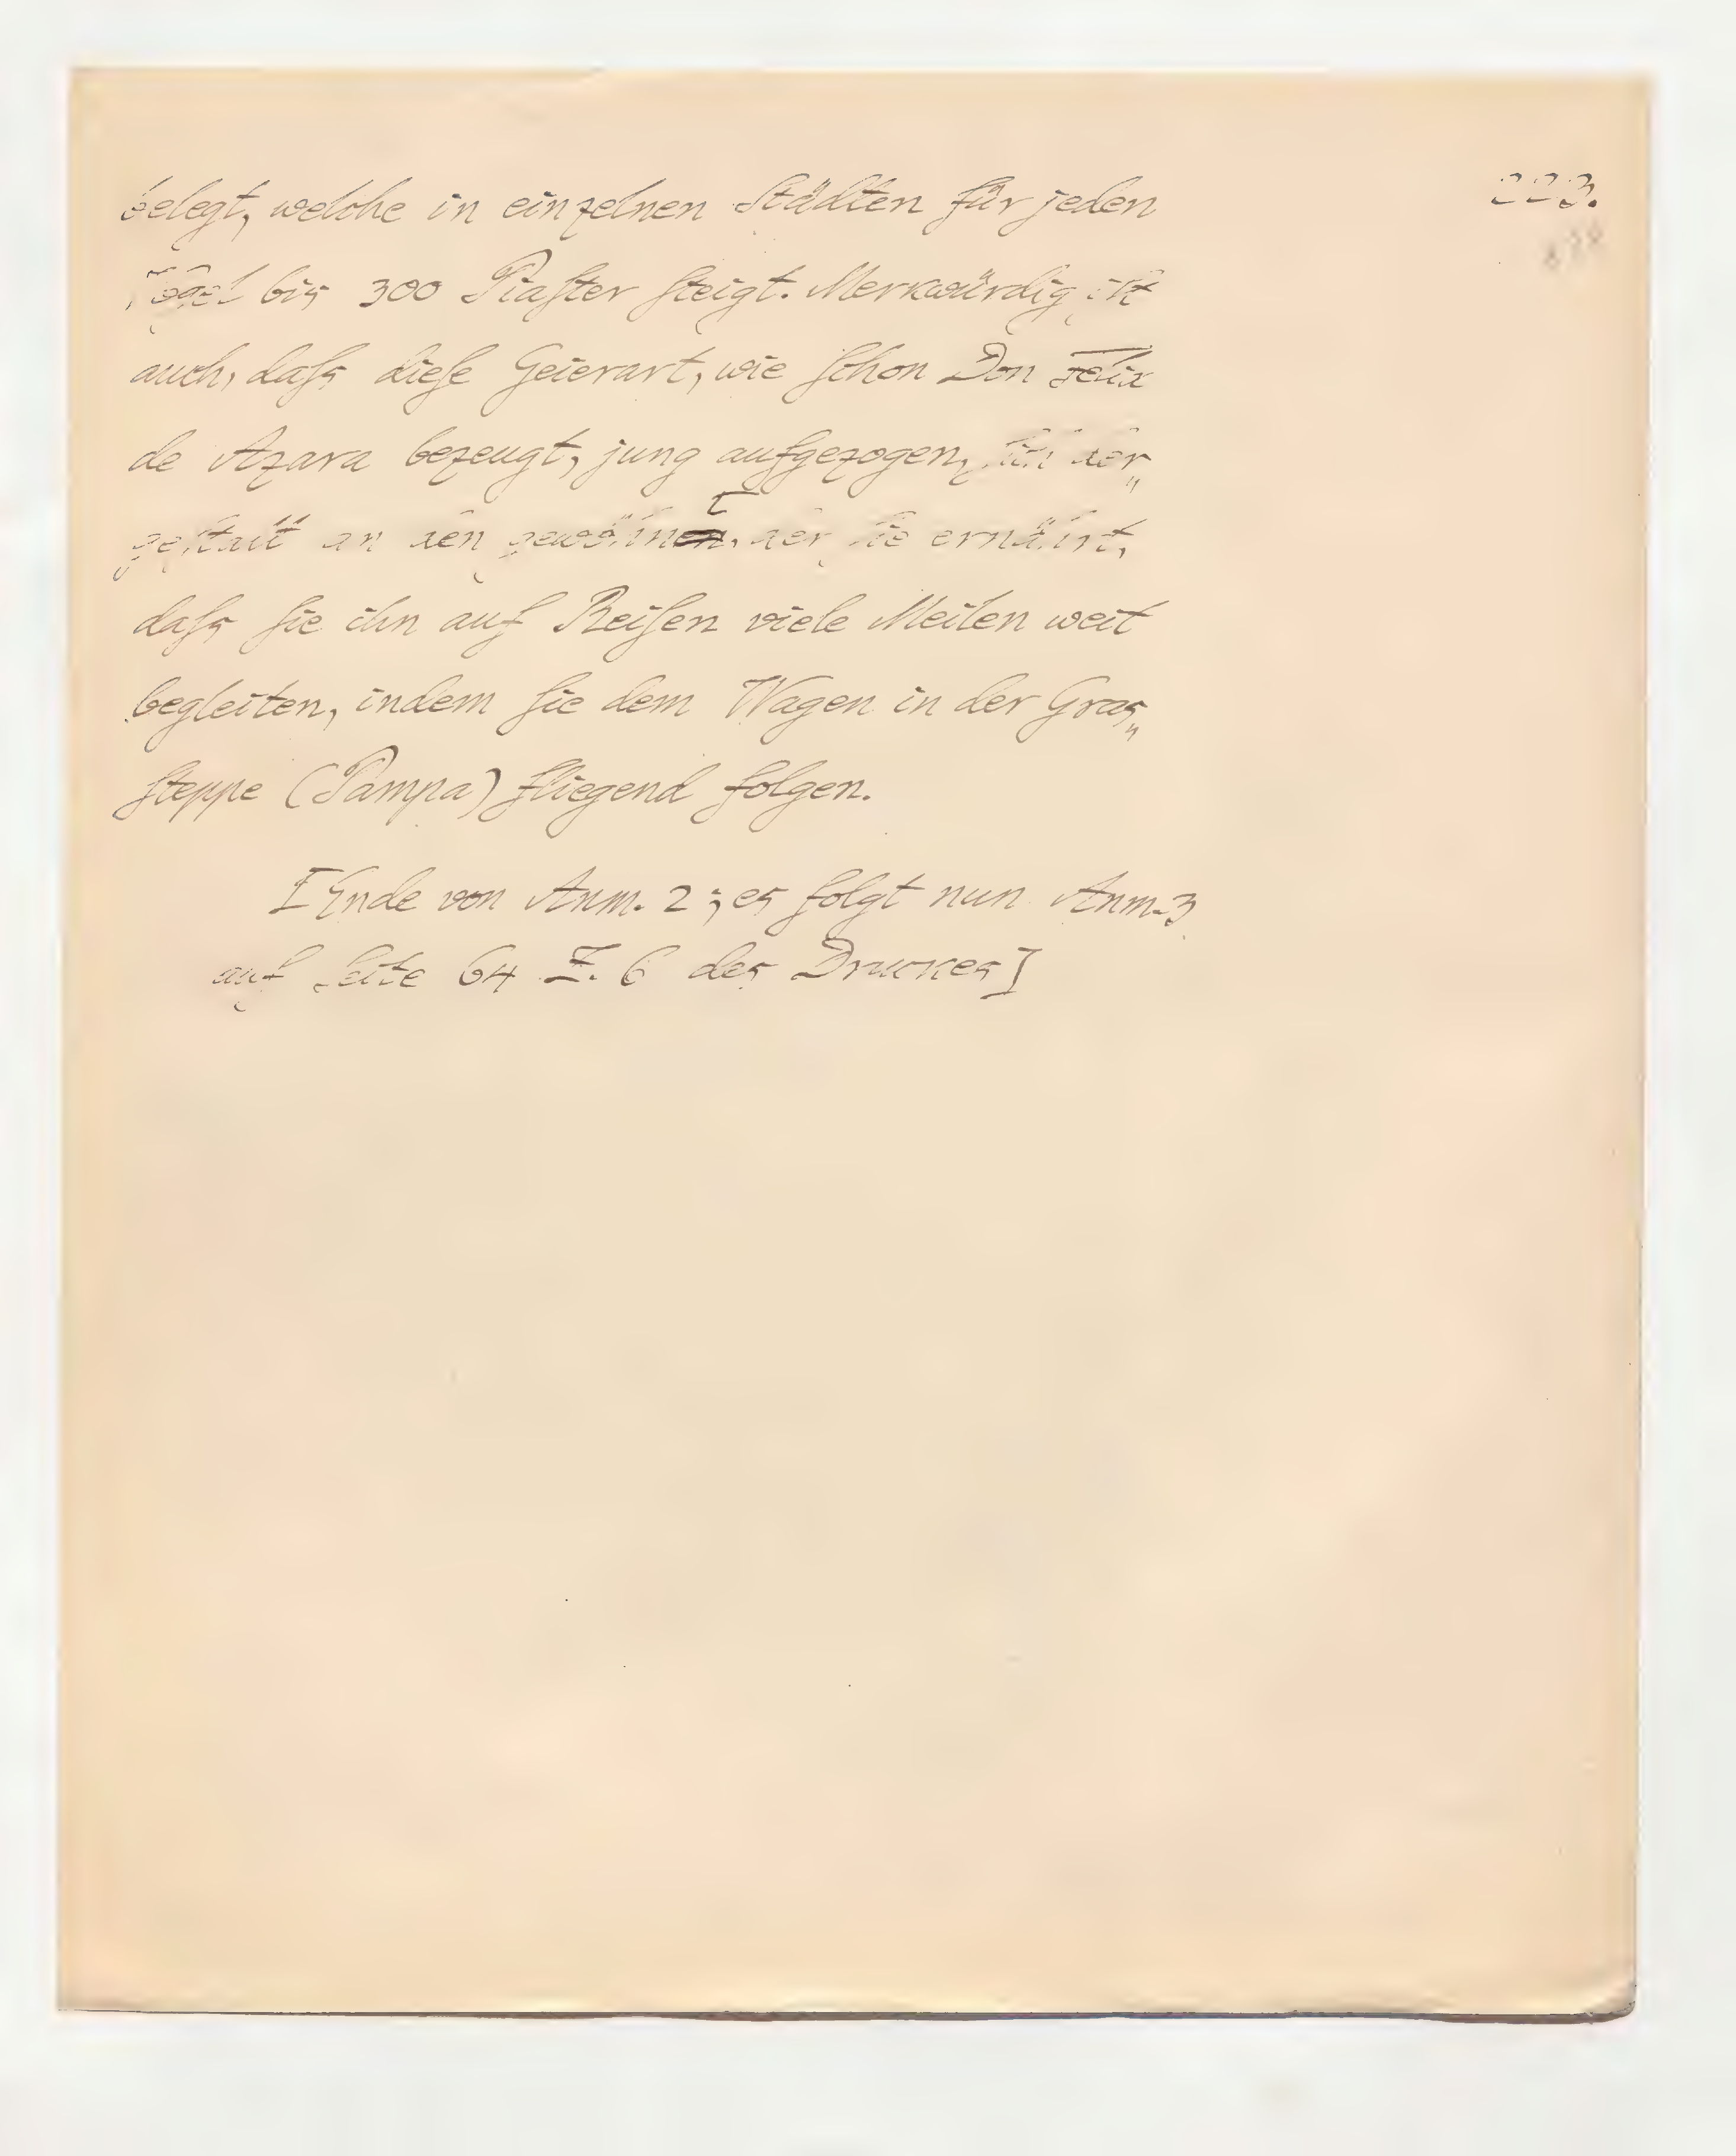 223.
belegt, welche in einzelnen Städten für jeden
Vogel bis 300 Piaſter ſteigt. Merkwürdig iſt
auch, daſs dieſe Geierart, wie ſchon Don Felix
de Azara bezeugt, jung aufgezogen, ſich der„
geſtalt an den gewöhnt, der ſie ernährt,
daſs ſie ihn auf Reiſen viele Meilen weit
begleiten, indem ſie dem Wagen in der Gras„
ſteppe (Pampa) fliegend folgen.
[Ende von Anm. 2; es folgt nun Anm. 3
auf Seite 64 Z. 6 des Druckes]